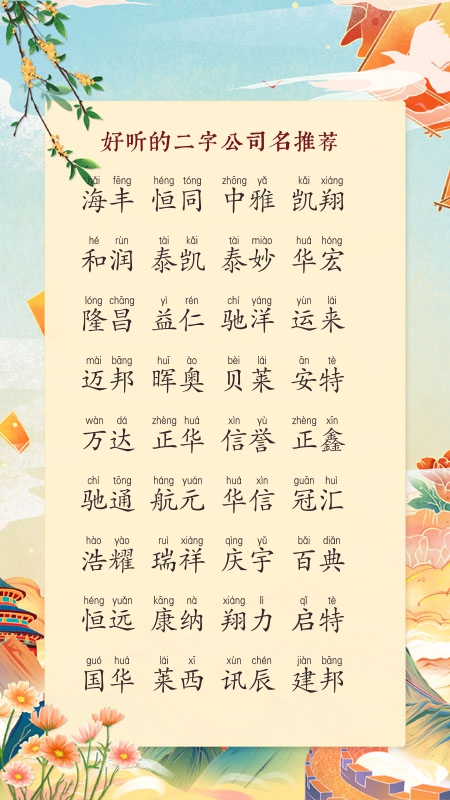 好听的二字公司名推荐
hǎi fēng héng tóng zhōng yǎ kǎi xiáng
海丰 恒同 中雅 凯翔
hé rùn tài kǎi tài miào huá hóng
和润 泰凯 泰妙 华宏
lóng chāng yì rén chí yáng yùn lái
隆昌 益仁 驰洋 运来
mài bāng huī ào bèi lái ān tè
迈邦 晖奥 贝莱 安特
wàn dá zhèng huá xìn yù zhèng xīn
万达 正华 信誉 正鑫
chí tōng háng yuán huá xìn guān huì
驰通 航元 华信 冠汇
hào yào ruì xiáng qìng yǔ bǎi diǎn
浩耀 瑞祥 庆宇 百典
héng yuǎn kāng nà xiáng lì qǐ tè
恒远 康纳 翔力 启特
guó huá lái xī xùn chén jiàn bāng
国华 莱西 讯辰 建邦